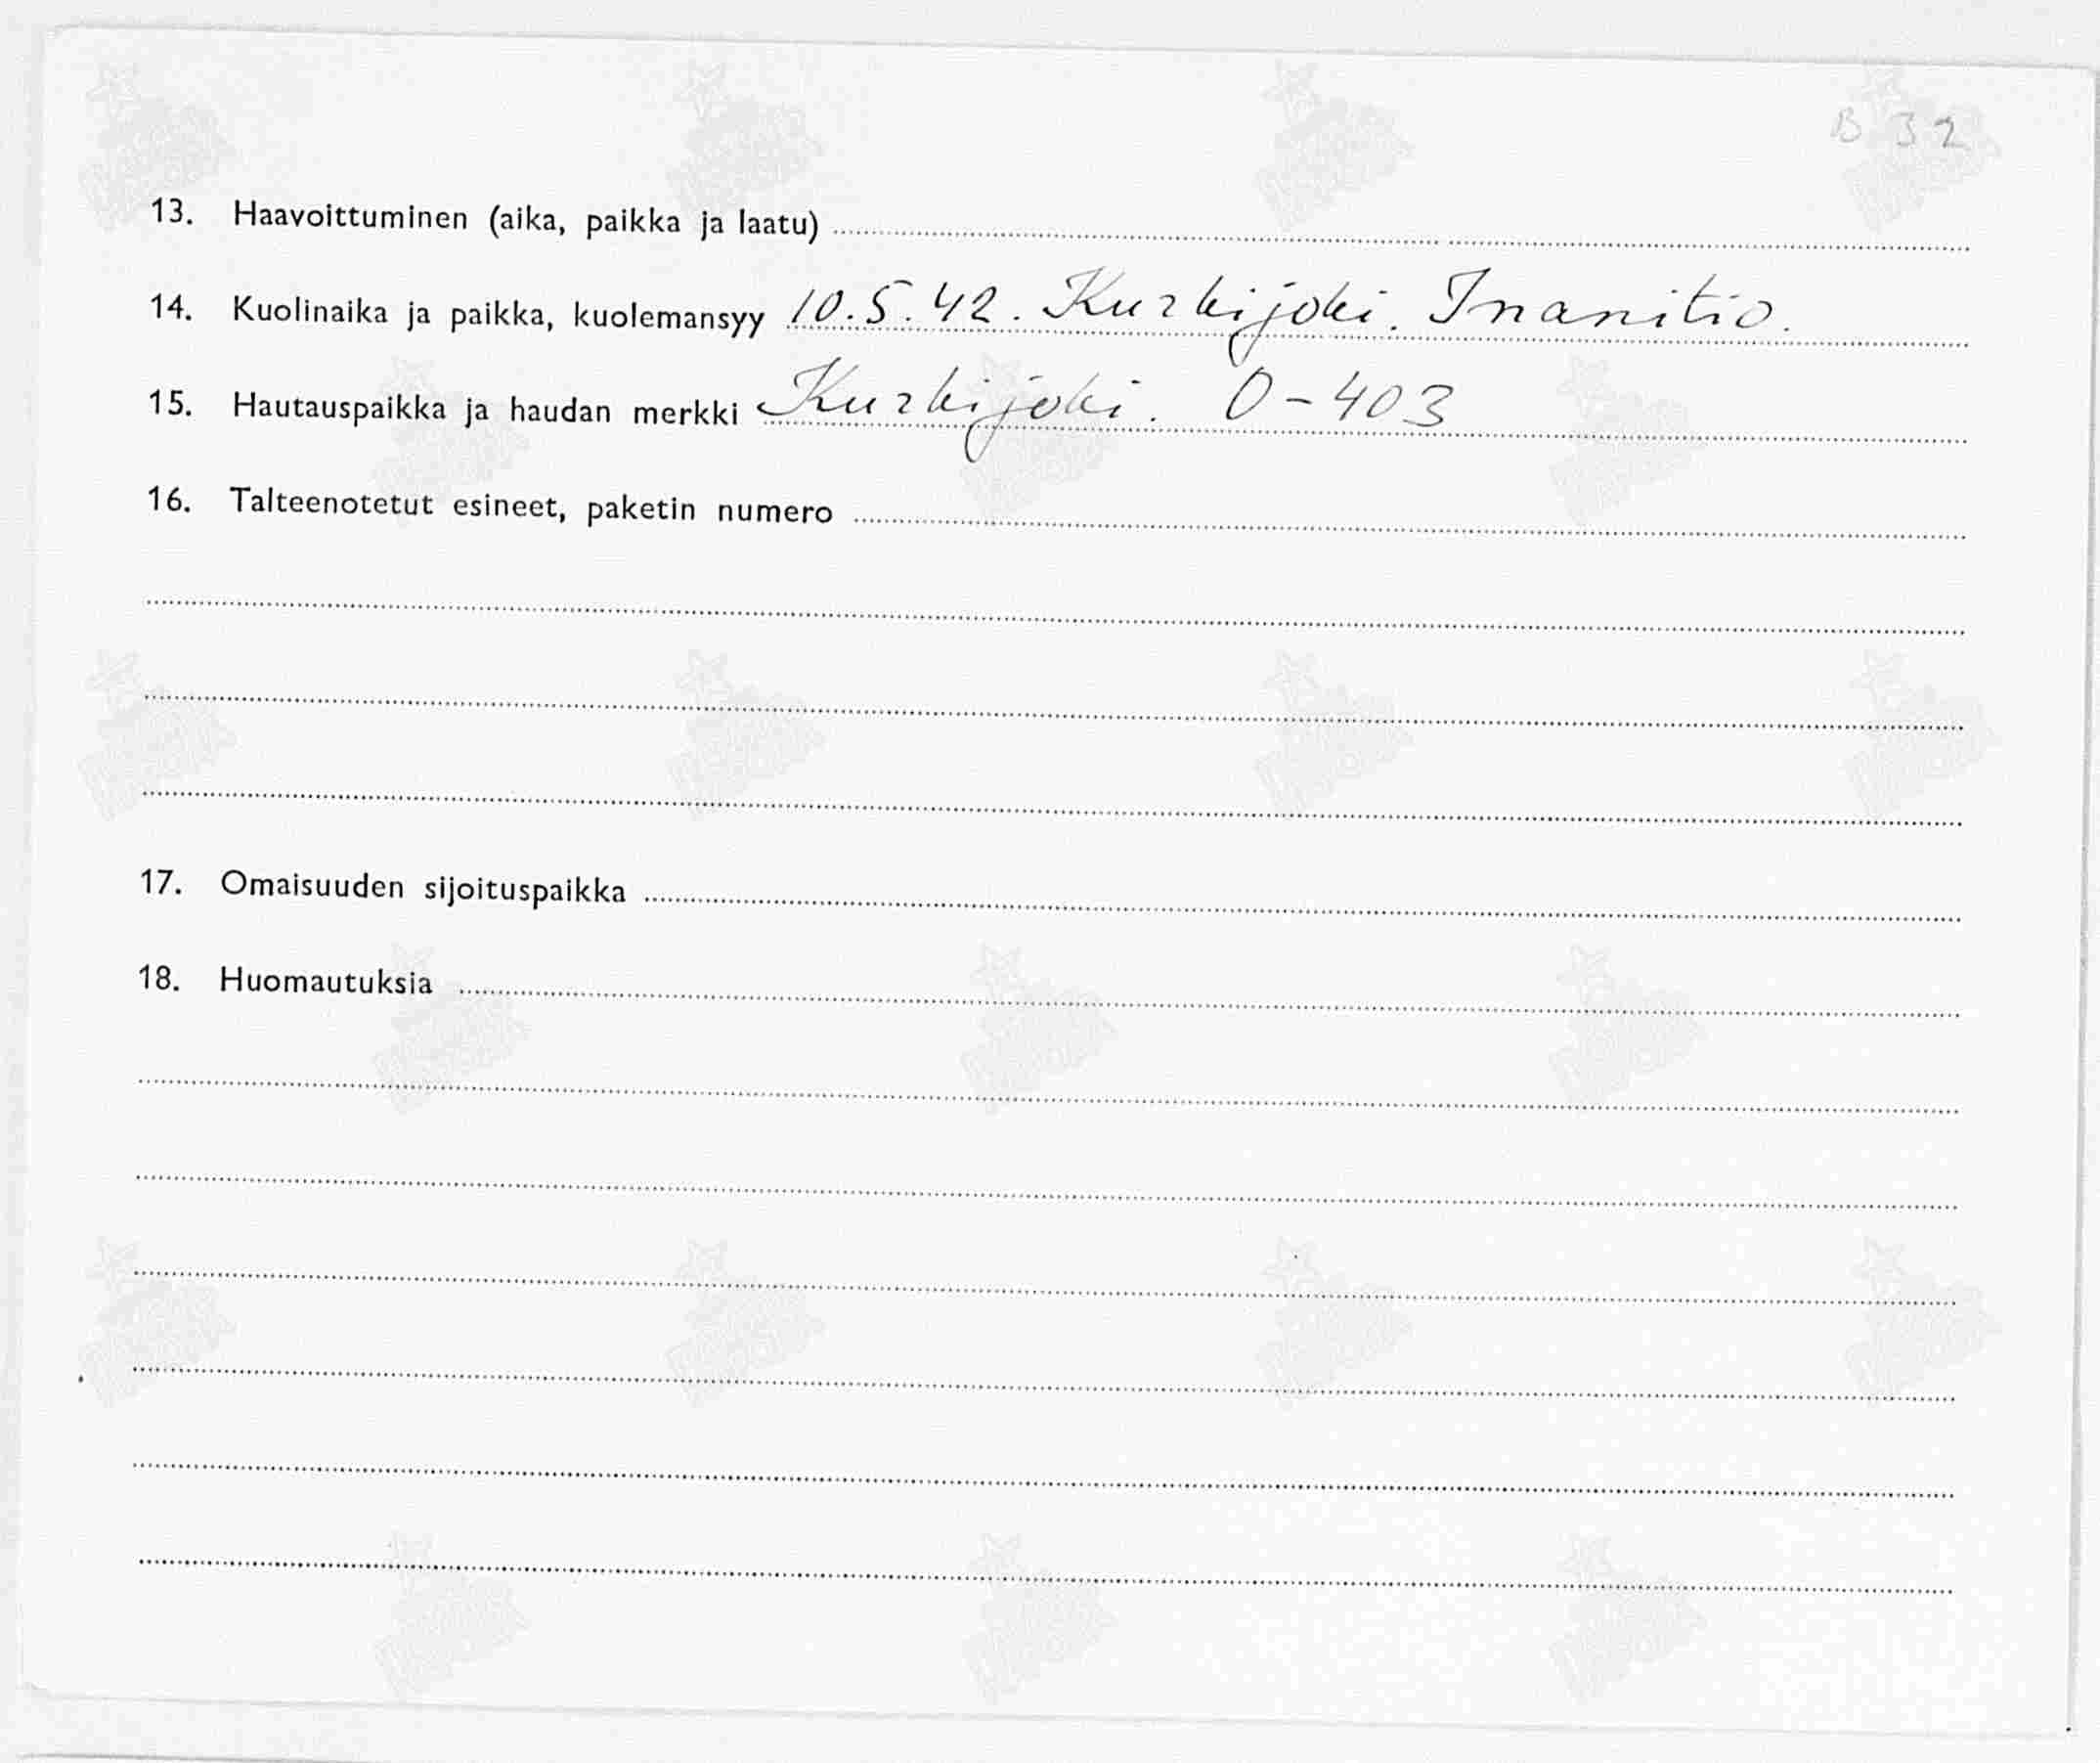 B 32
13. Haavoittuminen (aika, paikka ja laatu)
14. Kuolinaika ja paikka, kuolemansyy 10.5.42. Kurkijoki. Inanitio.
15. Hautauspaikka ja haudan merkki Kurkijoki. O-403
16. Talteenotetut esineet, paketin numero
17. Omaisuuden sijoituspaikka
18. Huomautuksia